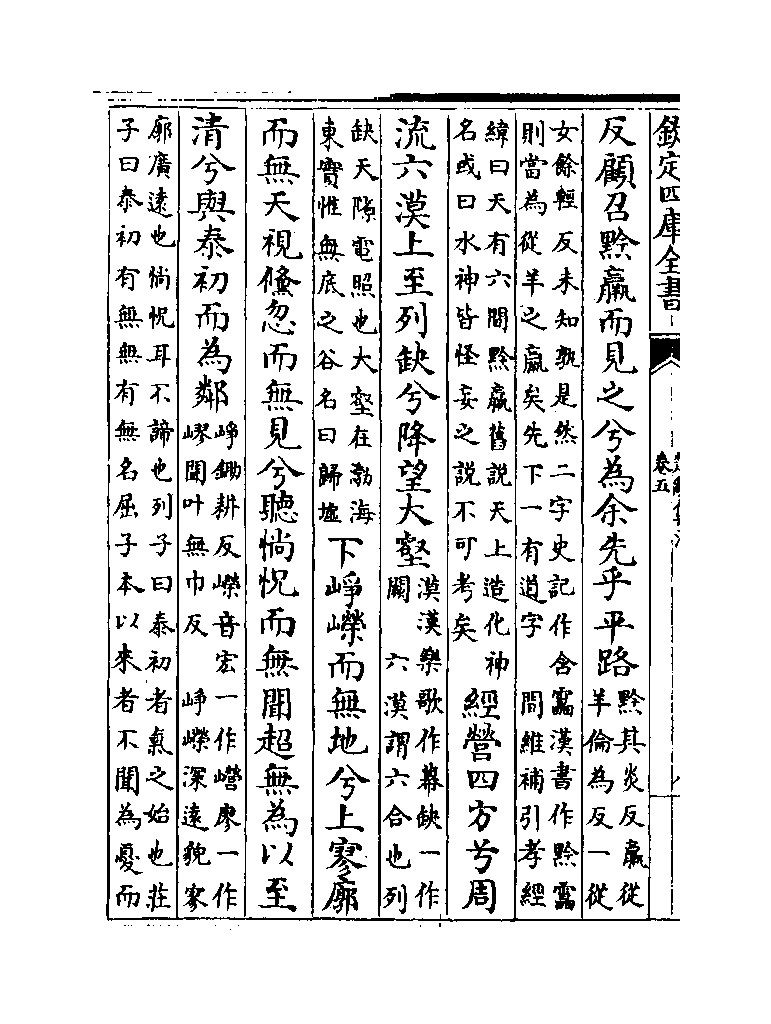 欽定四庫全書
卷五
反顧召黔羸而見之兮為余先乎平路
黔其炎反羸從
羊倫為反一從
女餘輕反未知孰是然二字史記作含靁漢書作黔靁
則當為從羊之羸矣先下一有道字 間維補引孝經
緯曰天有六間黔羸舊說天上造化神
名或曰水神皆怪妄之說不可考矣
經營四方兮周
流六漠上至列缺兮降望大壑
漠漢樂歌作幕缺一作
闕 六漠謂六合也列
缺天隙電照也大壑在渤海
東實惟無底之谷名曰歸墟
下崢嶸而無地兮上寥廓
而無天視儵忽而無見兮聽惝怳而無聞超無為以至
清兮與泰初而為鄰
崢鋤耕反嶸音宏一作巆廖一作
嵺聞叶無巾反 崢嶸深遠貌寥
廓廣遠也惝怳耳不諦也列子曰泰初者氣之始也莊
子曰泰初有無無有無名屈子本以來者不聞為憂而